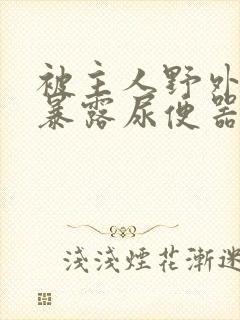 被主人野外
暴露尿便器
浅浅煙花漸迷